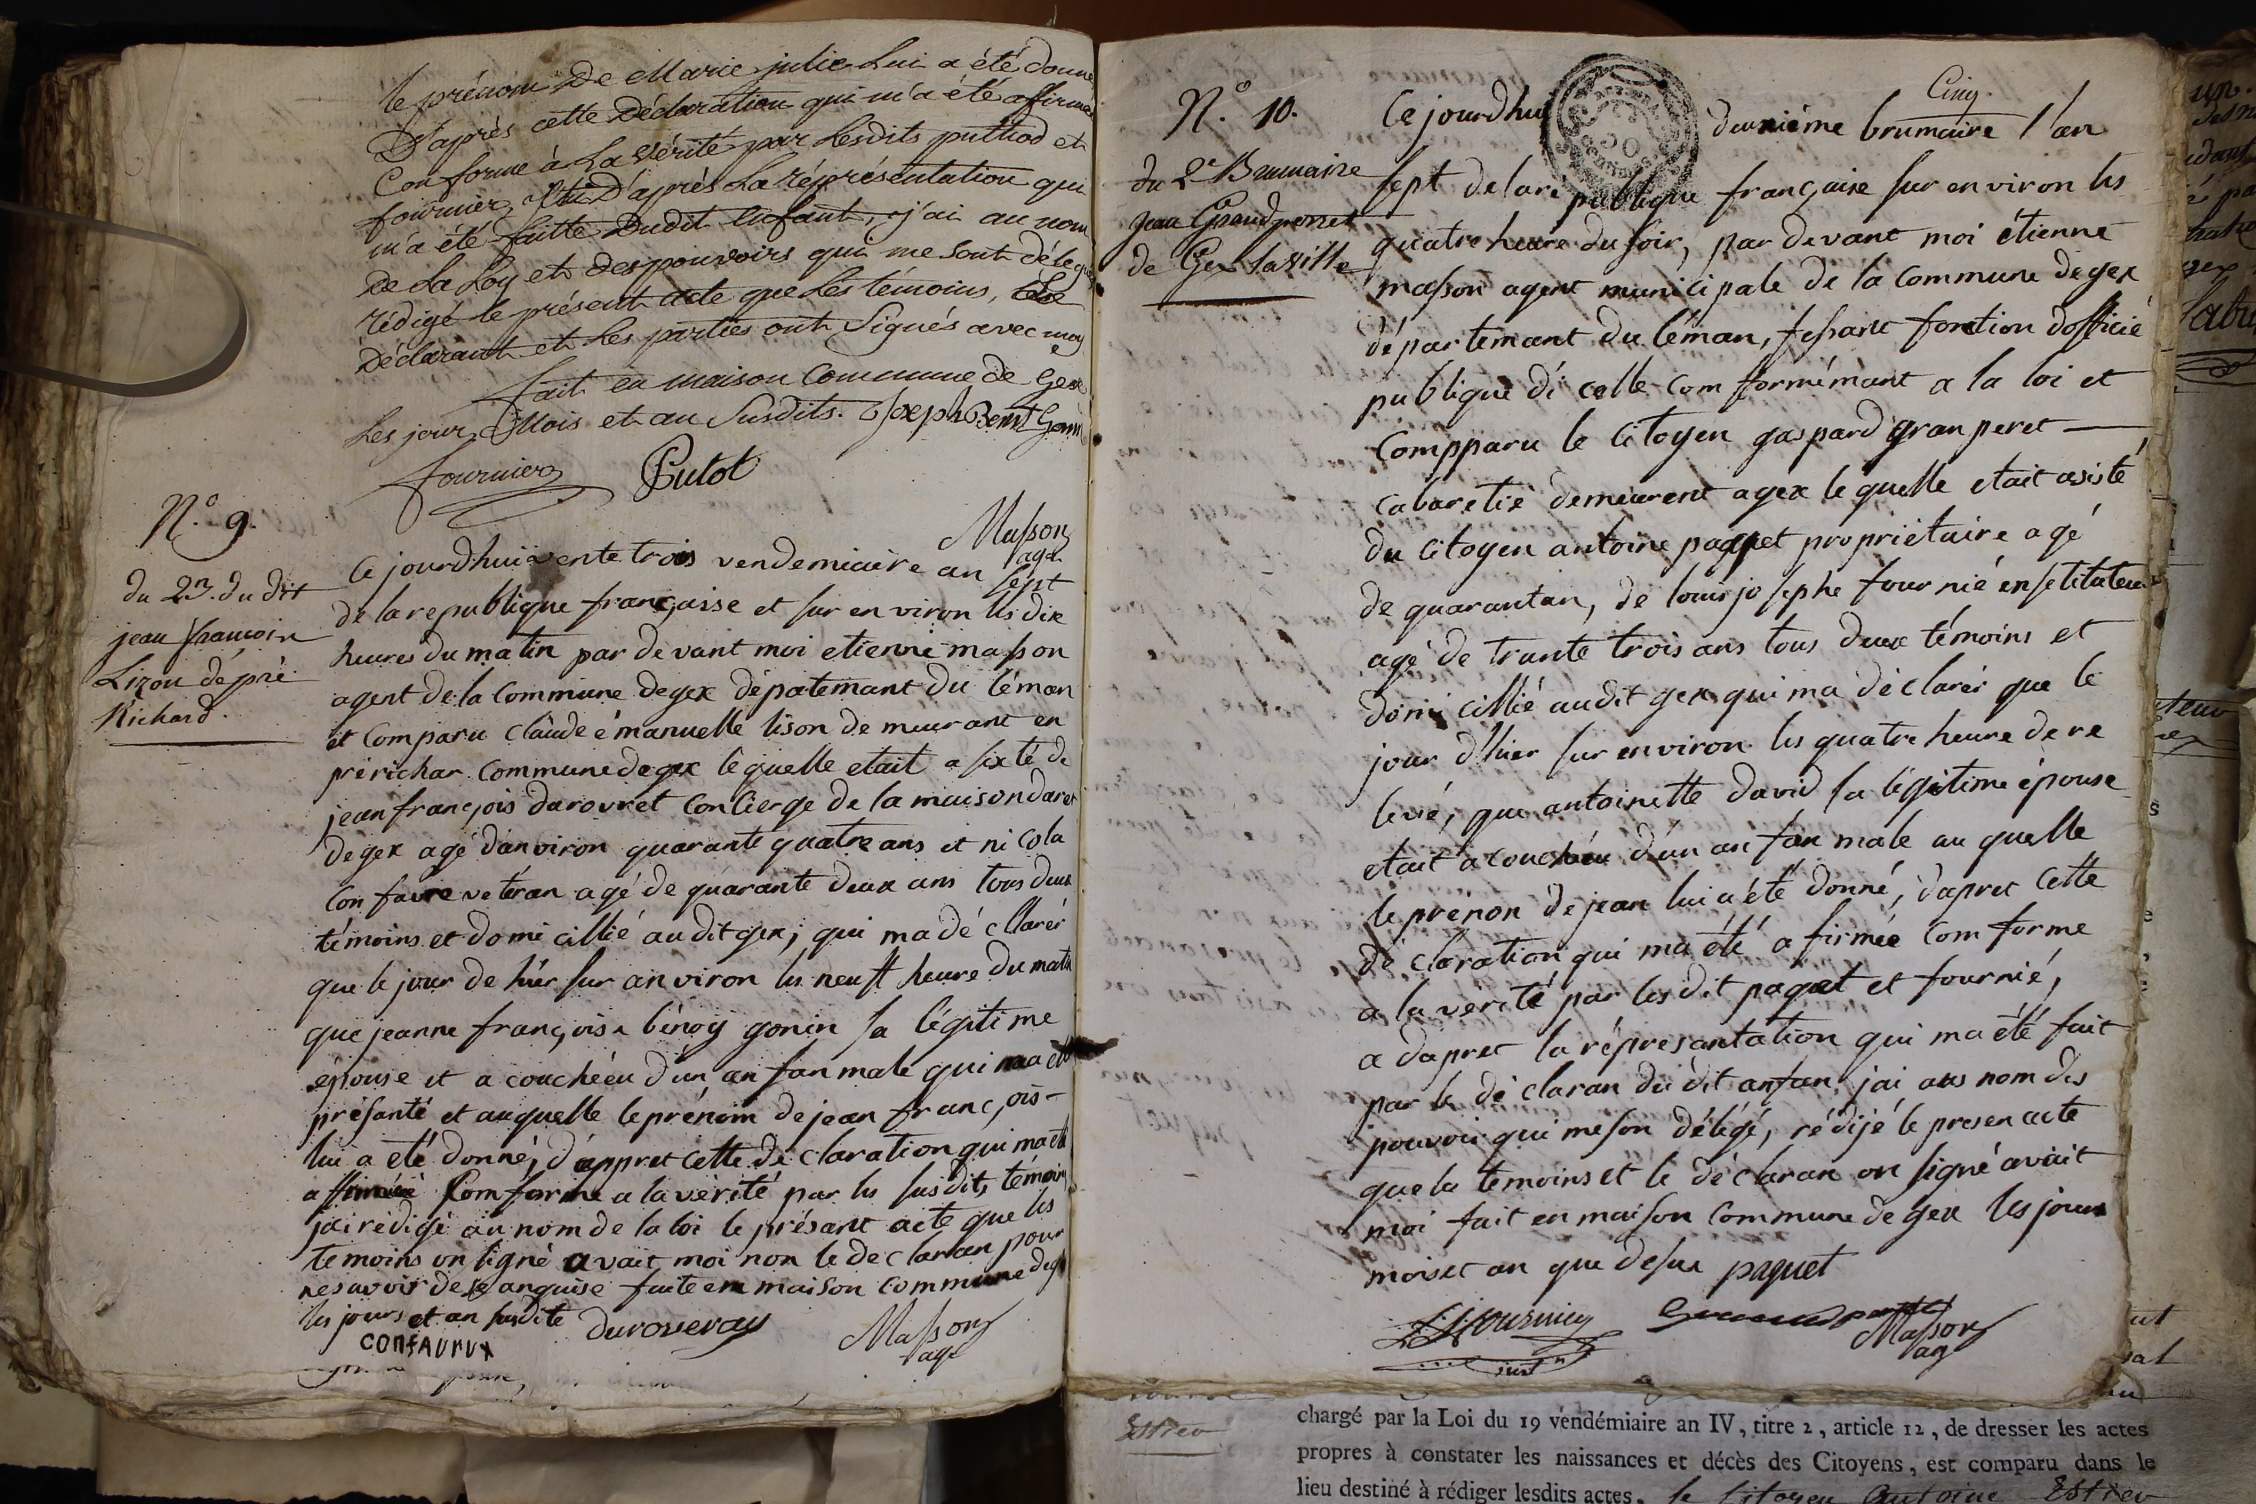 le prénom De Marie julie Lui a été donné
D'après cette Déclaration qui m'a été affirmée
Conforme à La vérité par Lesdits puthod et
fournier, et D'après La réprésentation qui
m'a été faitte Dudit Enfant, j'ai au nom
De La Loy et des pouvoirs qui me sont délegués
rédigé le présent acte que Les témoins, Le
Déclarant et Les parties ont Signés avec moy
fait en maison Commune de Gex
Les jour, Mois et an Susdits. Joseph Benoit Gonin
fournier Putot
Masson
agt
N.º 9.
du 23. du dit
jean françoin
Lizon de pré
Richard.
Ce jourdhui vente trois vendemiaire an sept
de la republique française et sur en viron les dix
heures du matin par devant moi etienne masson
agent de la Commune degex dépatemant du léman
et Comparu claude émanuelle lison de meurant en
prérichar Commune degex lequelle etait a sixté de
jean françois darovret Concierge de la maison daret
degex agé danviron quarante quatre ans et nicola
Confavre vetéran agé de quarante deux ans tous deux
témoins et domicillié audit gex, qui ma déclarér
que le jour de hiér sur anviron les neuft heure du matin
que jeanne françoise bénoy gonin sa légitime
epouse et a couchéeu d'un anfan male qui ma été
présanté et auquelle le prénom de jean françois -
lui a été donné, dappret cette déclaration qui ma été
affirmée Comforme a la vérité par les susdits témoins
jai rédigé au nom de la loi le présant acte que les
temoins on signé avait moi non le declaran pour
ne savoir de ce anquise faite en maison Commune degex
les jours et an susdite duroveray
CONFAVRUX
Masson
agt
N.º 10.
du 2e Brumaire
jean Grandperret
de Gex la ville
Cinq.
Ce jourdhui deuxiéme brumaire l'an
sept de la republique française sur environ les
quatre heure du soir, par devant moi étienne
masson agent municipale de la Commune degex
département du léman, fessant fonction dofficié
publique di celle Comformémant a la loi et
Compparu le Citoyen gaspard granperet
Cabaretié demeurent agex lequelle etait asisté
du Citoyen antoine paquet propriétaire agé
de quarantan, de louis josephe fournié ensetitateur
agé de trante trois ans tous deux témoins et
domicillié audit gex qui ma déclarér que le
jour d'hier sur environ les quatre heure de re
levé, que antoinette david sa légitime épouse
etait acouchéeu d'un anfan male au quelle
le prénon de jean lui a été donné, dapret Cette
déclaration qui ma été afirmée Comforme
a la verité par les dit paquet et fournié,
a dapret la réprésantation qui ma été fait
par le déclaran du dit anfan jai aus nom des
pouvoir qui me son délégé, rédijé le presen acte
que les temoins et le déclaran on signé avait
moi fait en maison Commune de gex les jours
mois et an que desux paquet
LJ fournier
Masson
ag
chargé par la Loi du 19 vendémiaire an IV, titre 2, article 12, de dresser les actes
propres à constater les naissances et décès des Citoyens, est comparu dans le
lieu destiné à rédiger lesdits actes, le Citoyen Antoine